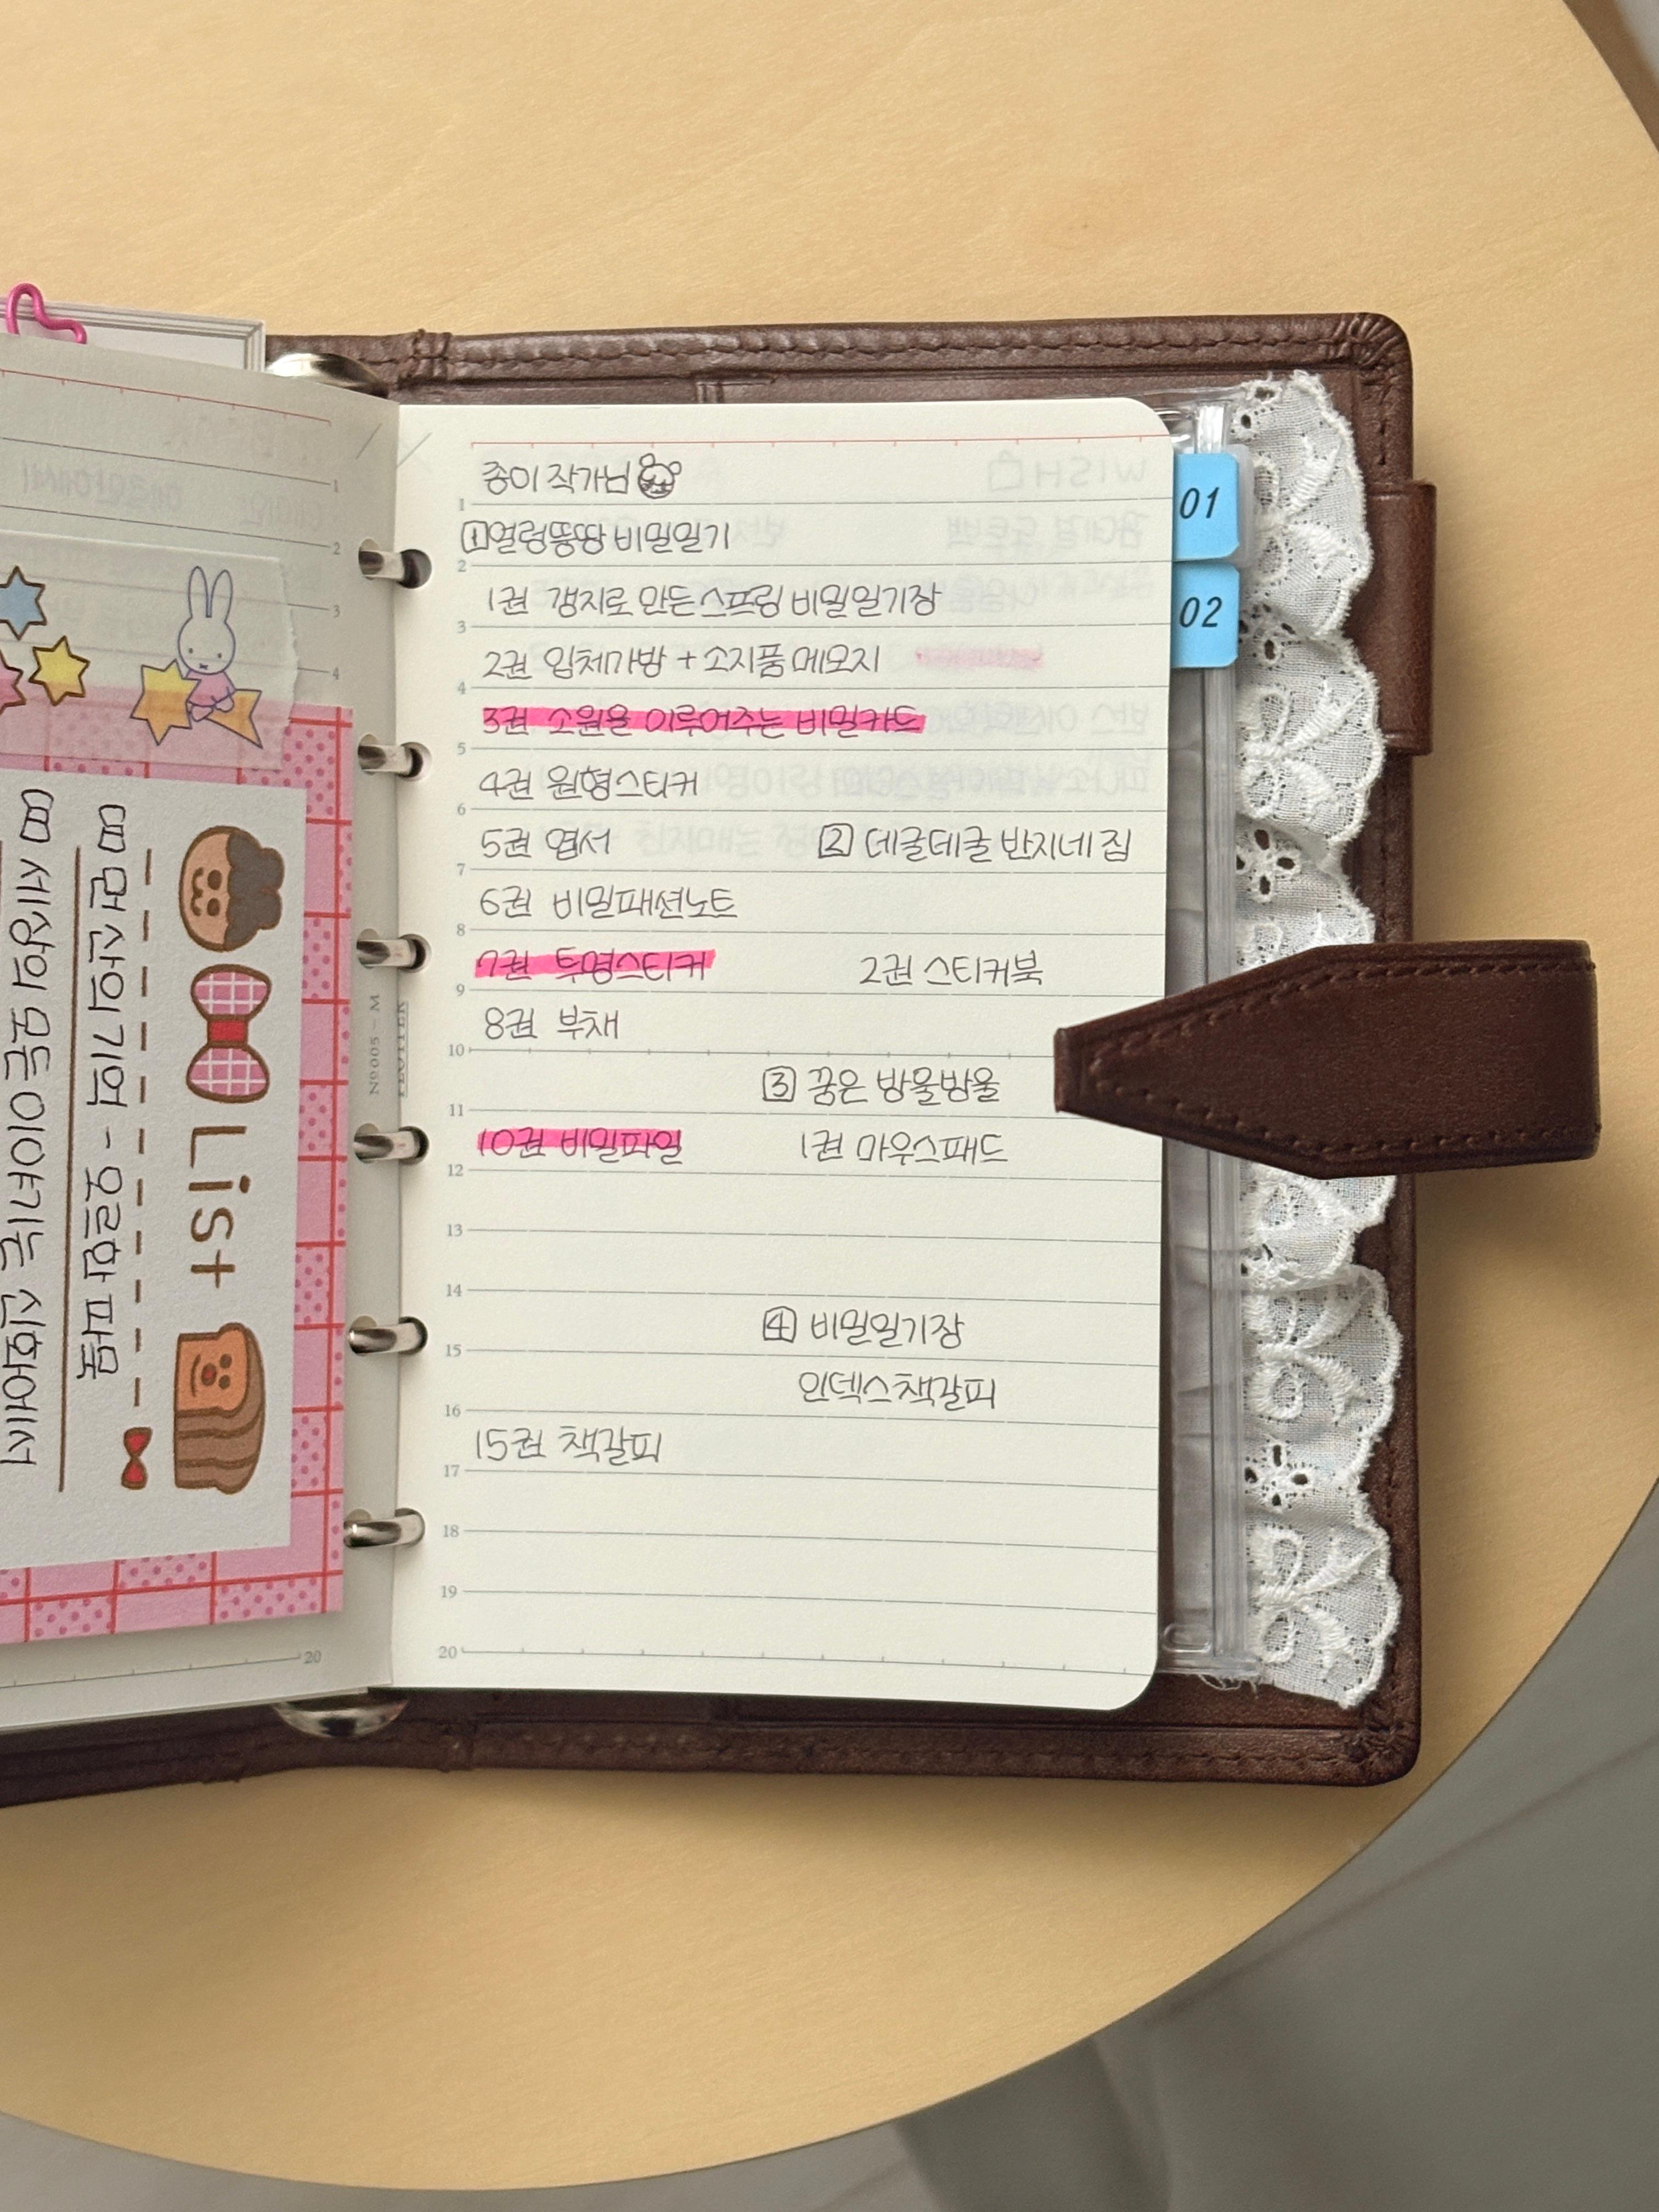 종이 작가님
1 얼렁뚱땅 비밀일기
1권 갱지로 만든 스프링 비밀일기장
2권 입체가방 + 소지품 메모지
3권 소원을 이루어주는 비밀카드
4권 원형스티커
5권 엽서
2 데굴데굴 반지네 집
6권 비밀패션노트
7권 투명스티커
2권 스티커북
8권 부채
3 꿈은 방울방울
10권 비밀파일
1권 마우스패드
4 비밀일기장
인덱스책갈피
15권 책갈피
1
2
3
4
5
6
7
8
9
10
11
12
13
14
15
16
17
18
19
20
01
02
List
먼 산의 기억 - 오르한 파묵
세상의 모든 이야기는 신화에서
Nº005-M
PLOTTER
1
2
3
4
20